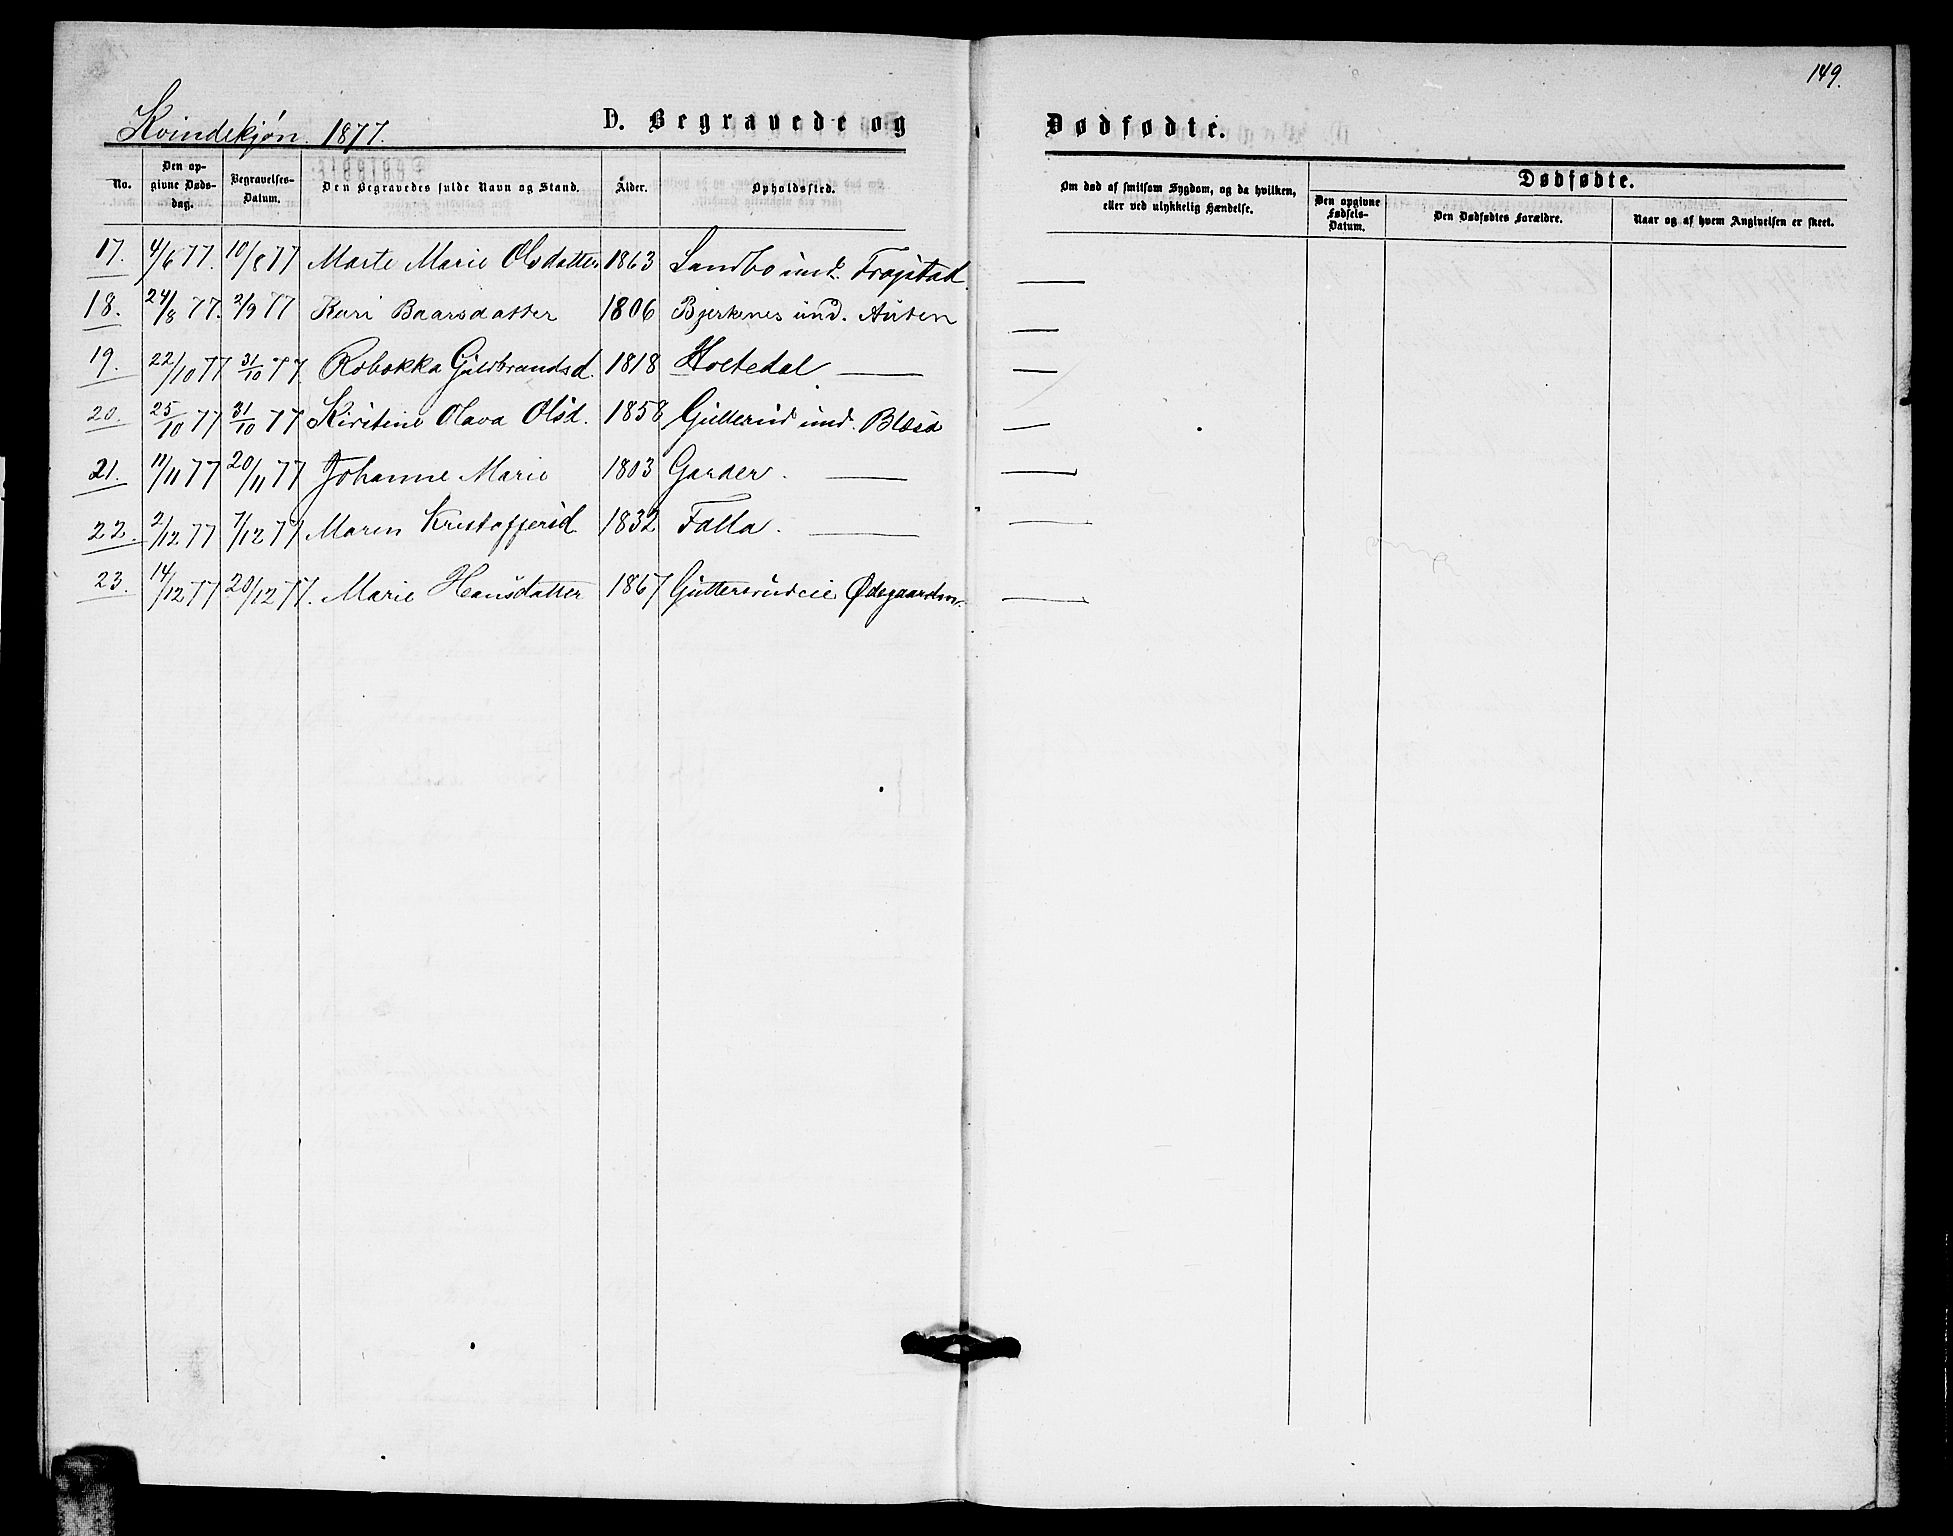 149.
Kvindekjøn. 1877.
D. Begravede og Dødfødte.
No.
Den opgivne Dødsdag.
Begravelses-Datum.
Den Begravedes fulde Navn og Stand.
Alder.
Opholdssted.
Om død af smitsom Sygdom, og da hvilken, eller ved ulykkelig Hændelse.
Dødfødte.
Den opgivne Fødsels-Datum.
Den Dødfødtes Forældre.
Naar og af hvem Angivelsen er skeet.
17. 4/6 77. 10/8 77 Marte Marie Olsdatter 1863 Sandbo und. Frogstad —
18. 24/8 77. 2/9 77 Kari Baarsdatter 1806 Bjerkenes und. Austen —
19. 22/10 77 31/10 77 Rebekka Gulbrandsd. 1818 Holtedal — —
20. 25/10 77 31/10 77 Kirstine Olava Olsd. 1858 Gutterud und. —
21. 11/11 77 20/11 77 Johanne Marie 1803 Garder. — —
22. 2/12 77 7/12 77 Maren Kristoffersd. 1832 Falla. — —
23. 14/12 77 20/12 77. Marie Hansdatter 1867 Guttersrudeie Ødegaarden. —